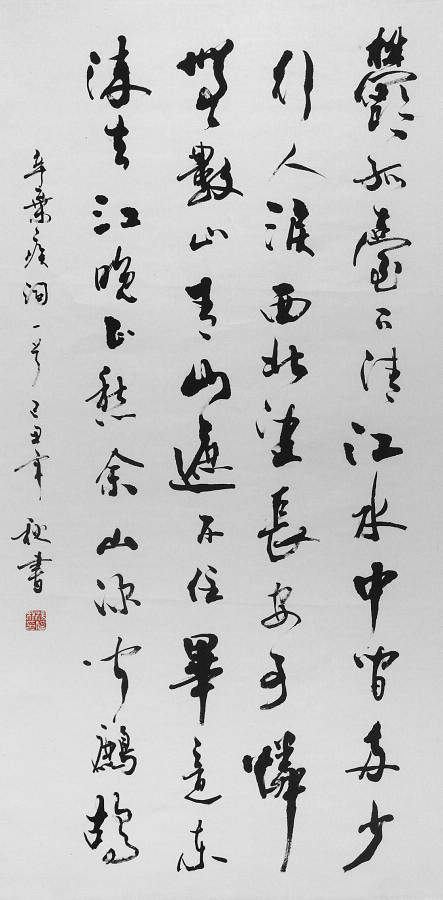 鬱孤臺下清江水中間多少
行人淚西北望長安可憐
無數山青山遮不住畢竟東
流去江晚正愁余山深聞鷓鴣
辛棄疾詞一首己丑年秋書